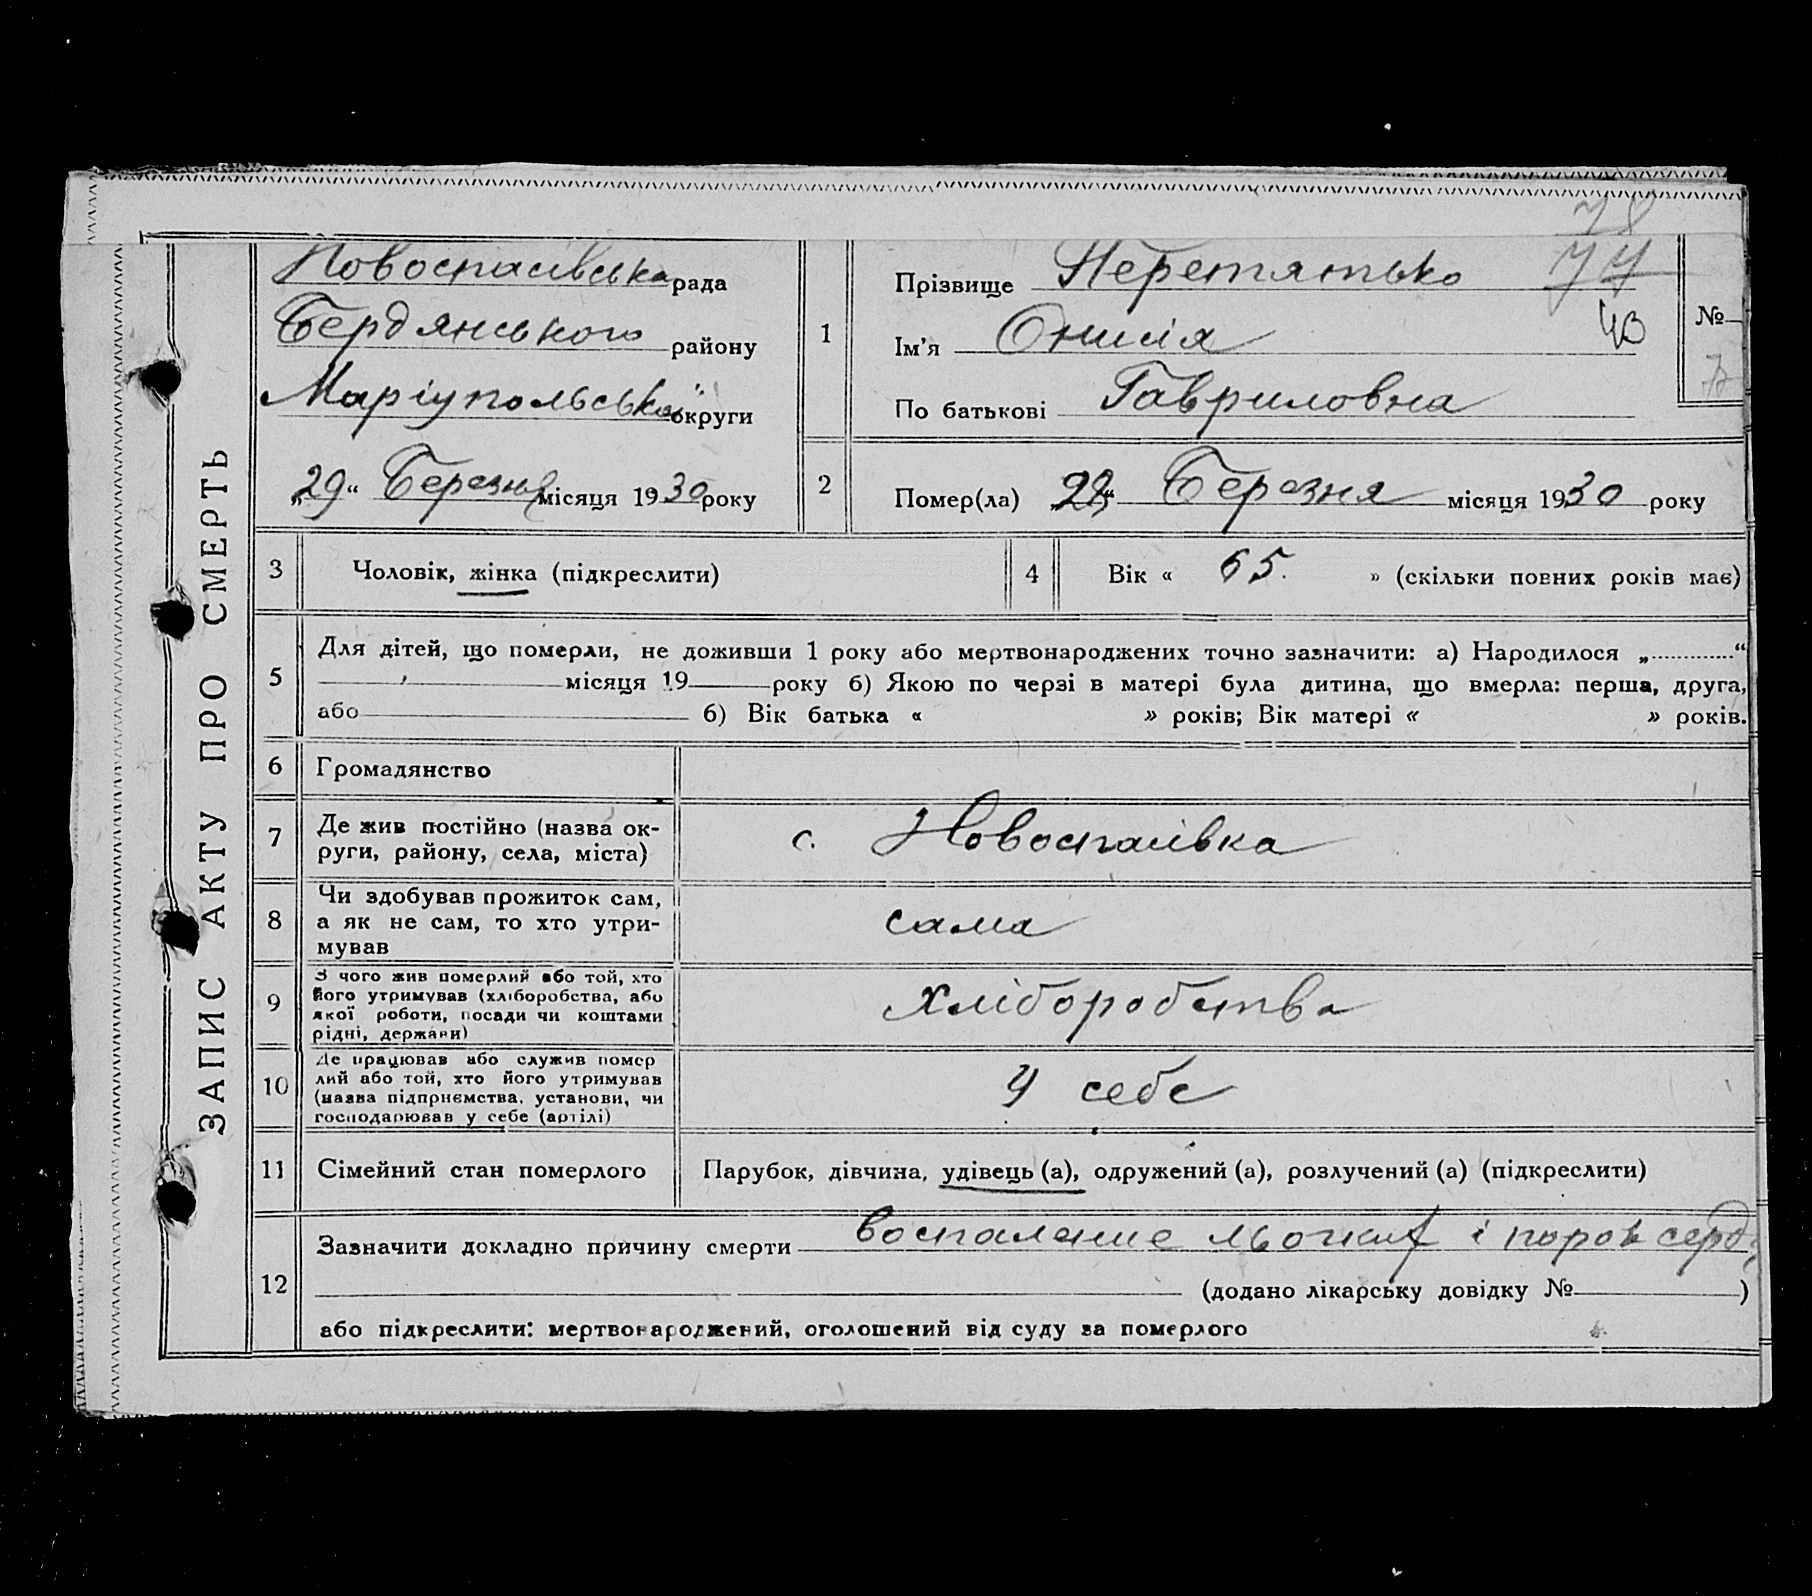 ЗАПИС АКТУ ПРО СМЕРТЬ
78
Новоспасівська рада
Бердянського району
Маріупольської округи
„29“ Березня місяця 1930 року
1
Прізвище Перетятько 74
Ім'я Онисія 43
По батькові Гавриловна
№
2
Помер(ла) „28“ Березня місяця 1930 року
3
Чоловік, жінка (підкреслити)
4
Вік « 65. » (скільки повних років має)
5
Для дітей, що померли, не доживши 1 року або мертвонароджених точно зазначити: а) Народилося „............“
місяця 19 року б) Якою по черзі в матері була дитина, що вмерла: перша, друга,
або б) Вік батька « » років; Вік матері « » років.
6
Громадянство
7
Де жив постійно (назва ок-
руги, району, села, міста)
с. Новоспаівка
8
Чи здобував прожиток сам,
а як не сам, то хто утри-
мував
сама
9
З чого жив померлий або той, хто
його утримував (хліборобства, або
якої роботи, посади чи коштами
рідні, держави)
Хліборобства
10
Де працював або служив помер
лий або той, хто його утримував
(назва підприємства, установи, чи
господарював у себе (артілі)
У себе
11
Сімейний стан померлого
Парубок, дівчина, удівець (а), одружений (а), розлучений (а) (підкреслити)
12
Зазначити докладно причину смерти воспаление льогких і порок серд
(додано лікарську довідку № )
або підкреслити: мертвонароджений, оголошений від суду за померлого